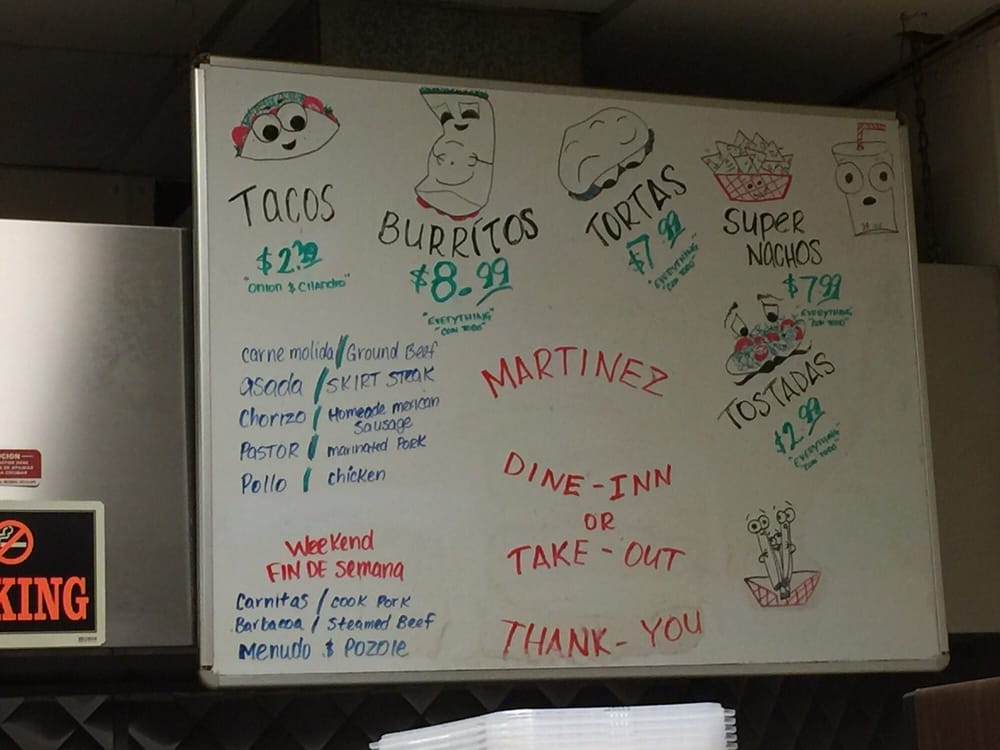 TACOS
$2.99
"Onion & Cilantro"
BURRITOS
$8.99
"EVERYTHING"
"CON TODO"
TORTAS
$7.99
"EVERYTHING"
"CON TODO"
SUPER
NACHOS
$7.99
"EVERYTHING"
"CON TODO"
TOSTADAS
$2.99
"EVERYTHING"
"CON TODO"
carne molida / Ground Beef
asada / SKIRT STEAK
Chorizo / Homeade mexican
Sausage
PASTOR / marinated Pork
Pollo / chicken
Weekend
FIN DE Semana
Carnitas / cook Pork
Barbacoa / Steamed Beef
Menudo & Pozole
MARTINEZ
DINE-INN
OR
TAKE-OUT
THANK-YOU
KING